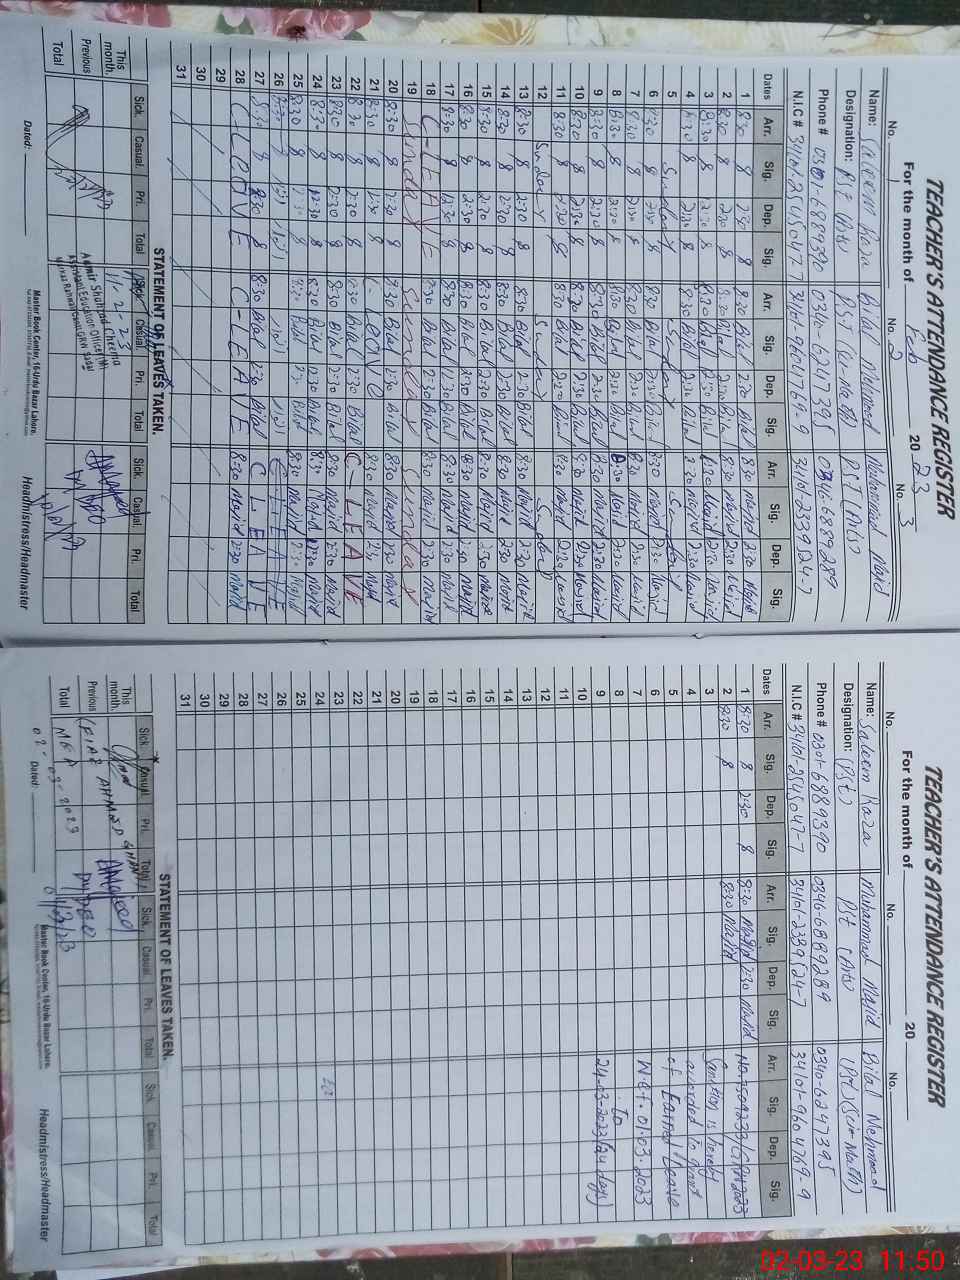 TEACHER'S ATTENDANCE REGISTER
For the month of Feb 2023
No. 1 No. 2 No. 3
Name: Saleem Raza Bilal Mehmood Muhammad Majid
Designation: PST (Arts) PST (Sci-Math) PST (Arts)
Phone # 0301-6889390 0340-6247395 0346-6889289
N.I.C # 34101-2545047-7 34101-9604769-9 34101-2339524-7
Dates Arr. Sig. Dep. Sig. Arr. Sig. Dep. Sig. Arr. Sig. Dep. Sig.
1 8:30 8 2:30 8 8:30 Bilal 2:30 Bilal 8:30 Majid 2:30 Majid
2 8:30 8 2:30 8 8:30 Bilal 2:30 Bilal 8:30 Majid 2:30 Majid
3 8:30 8 12:30 8 8:30 Bilal 12:30 Bilal 8:30 Majid 12:30 Majid
4 8:30 8 2:30 8 8:30 Bilal 2:30 Bilal 8:30 Majid 2:30 Majid
5 Sunday Sunday Sunday
6 8:30 8 2:30 8 8:30 Bilal 2:30 Bilal 8:30 Majid 2:30 Majid
7 8:30 8 2:30 8 8:30 Bilal 2:30 Bilal 8:30 Majid 2:30 Majid
8 8:30 8 2:30 8 8:30 Bilal 2:30 Bilal 8:30 Majid 2:30 Majid
9 8:30 8 2:30 8 8:30 Bilal 2:30 Bilal 8:30 Majid 2:30 Majid
10 8:30 8 8 8:30 Bilal Bilal 8:30 Majid Majid
11 8:30 8 2:30 8 8:30 Bilal 2:30 Bilal 8:30 Majid 2:30 Majid
12 Sunday Sunday Sunday
13 8:30 8 2:30 8 8:30 Bilal 2:30 Bilal 8:30 Majid 2:30 Majid
14 8:30 8 2:30 8 8:30 Bilal 2:30 Bilal 8:30 Majid 2:30 Majid
15 8:30 8 2:30 8 8:30 Bilal 2:30 Bilal 8:30 Majid 2:30 Majid
16 8:30 8 2:30 8 8:30 Bilal 2:30 Bilal 8:30 Majid 2:30 Majid
17 8:30 8 12:30 8 8:30 Bilal 12:30 Bilal 8:30 Majid 12:30 Majid
18 C-LEAVE 8:30 Bilal 2:30 Bilal 8:30 Majid 2:30 Majid
19 Sunday Sunday Sunday
20 8:30 8 2:30 8 8:30 Bilal 2:30 Bilal 8:30 Majid 2:30 Majid
21 8:30 8 2:30 8 C-Leave 8:30 Majid 2:30 Majid
22 8:30 8 2:30 8 8:30 Bilal 2:30 Bilal C LEAVE
23 8:30 8 2:30 8 8:30 Bilal 2:30 Bilal 8:30 Majid 2:30 Majid
24 8:30 8 12:30 8 8:30 Bilal 12:30 Bilal 8:30 Majid 12:30 Majid
25 8:30 8 2:30 8 8:30 Bilal 2:30 Bilal 8:30 Majid 2:30 Majid
26
27 8:30 8 2:30 8 8:30 Bilal 2:30 Bilal C LEAVE
28 C-LEAVE C-LEAVE 8:30 Majid 2:30 Majid
29
30
31
STATEMENT OF LEAVES TAKEN.
Sick. Casual. Pri. Total Sick. Casual. Pri. Total Sick. Casual. Pri. Total
This month.
Previous
Total
11-2-23
Aamir Shahzad Cheema
Assistant Education Officer (M)
DyDEO
Dated:
Master Book Center, 16-Urdu Bazar Lahore.
Headmistress/Headmaster
TEACHER'S ATTENDANCE REGISTER
For the month of 20
No. No. No.
Name: Saleem Raza Muhammad Majid Bilal Mehmood
Designation: (Pst) Pst (Arts) (Pst) (Sci-Math)
Phone # 0301-6889390 0346-6889289 0340-6247395
N.I.C # 34101-2545047-7 34101-2339524-7 34101-9604769-9
Dates Arr. Sig. Dep. Sig. Arr. Sig. Dep. Sig. Arr. Sig. Dep. Sig.
1 8:30 8 2:30 8 8:30 Majid 2:30 Majid
2 8:30 8 8:30 Majid
3
4
5
6
7
8
9
10
11
12
13
14
15
16
17
18
19
20
21
22
23
24
25
26
27
28
29
30
31
Sanction is hereby
awarded to grant
of Earned Leave
W.e.f. 01.03.2023
To
24-03-2023 (24 days)
STATEMENT OF LEAVES TAKEN.
Sick. Casual. Pri. Total Sick. Casual. Pri. Total Sick. Casual. Pri. Total
This month.
Previous
Total
MEA
02-03-2023
DyDEO
01/03/23
Dated:
Master Book Center, 16-Urdu Bazar Lahore.
Headmistress/Headmaster
02-03-23 11:50